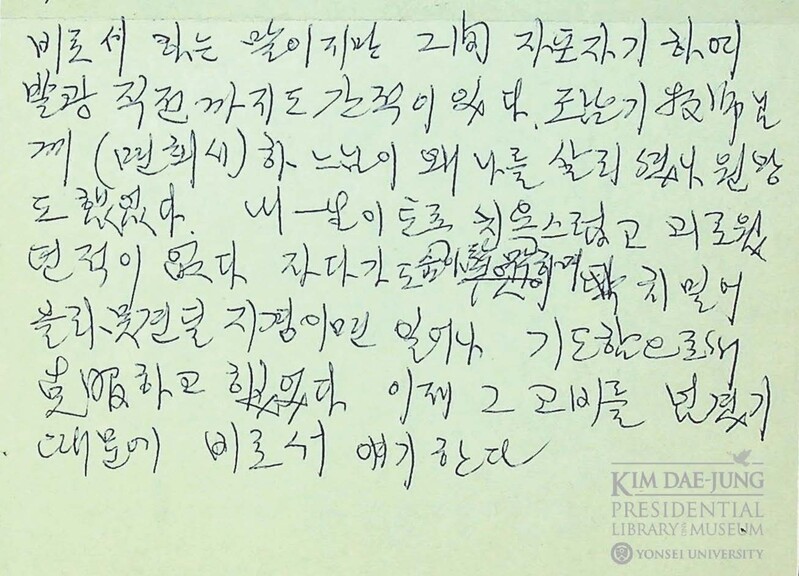 비로서 하는 말이지만 그間 자포자기 하여
발광 직전까지도 간적이 있다.
께 (면회시) 하느님이 왜 나를 살리셨나 원망
도 했었다. 내 一生이 토록 치욕스럽고 괴로웠
던적이 없다 자다가도 숨이 치밀어
올라 못견딜 지경이면 일어나 기도함으로써
克服하고 했었다 이제 그 고비를 넘겼기
때문에 비로서 얘기 한다
KIM DAE-JUNG
PRESIDENTIAL
LIBRARY AND MUSEUM
YONSEI UNIVERSITY